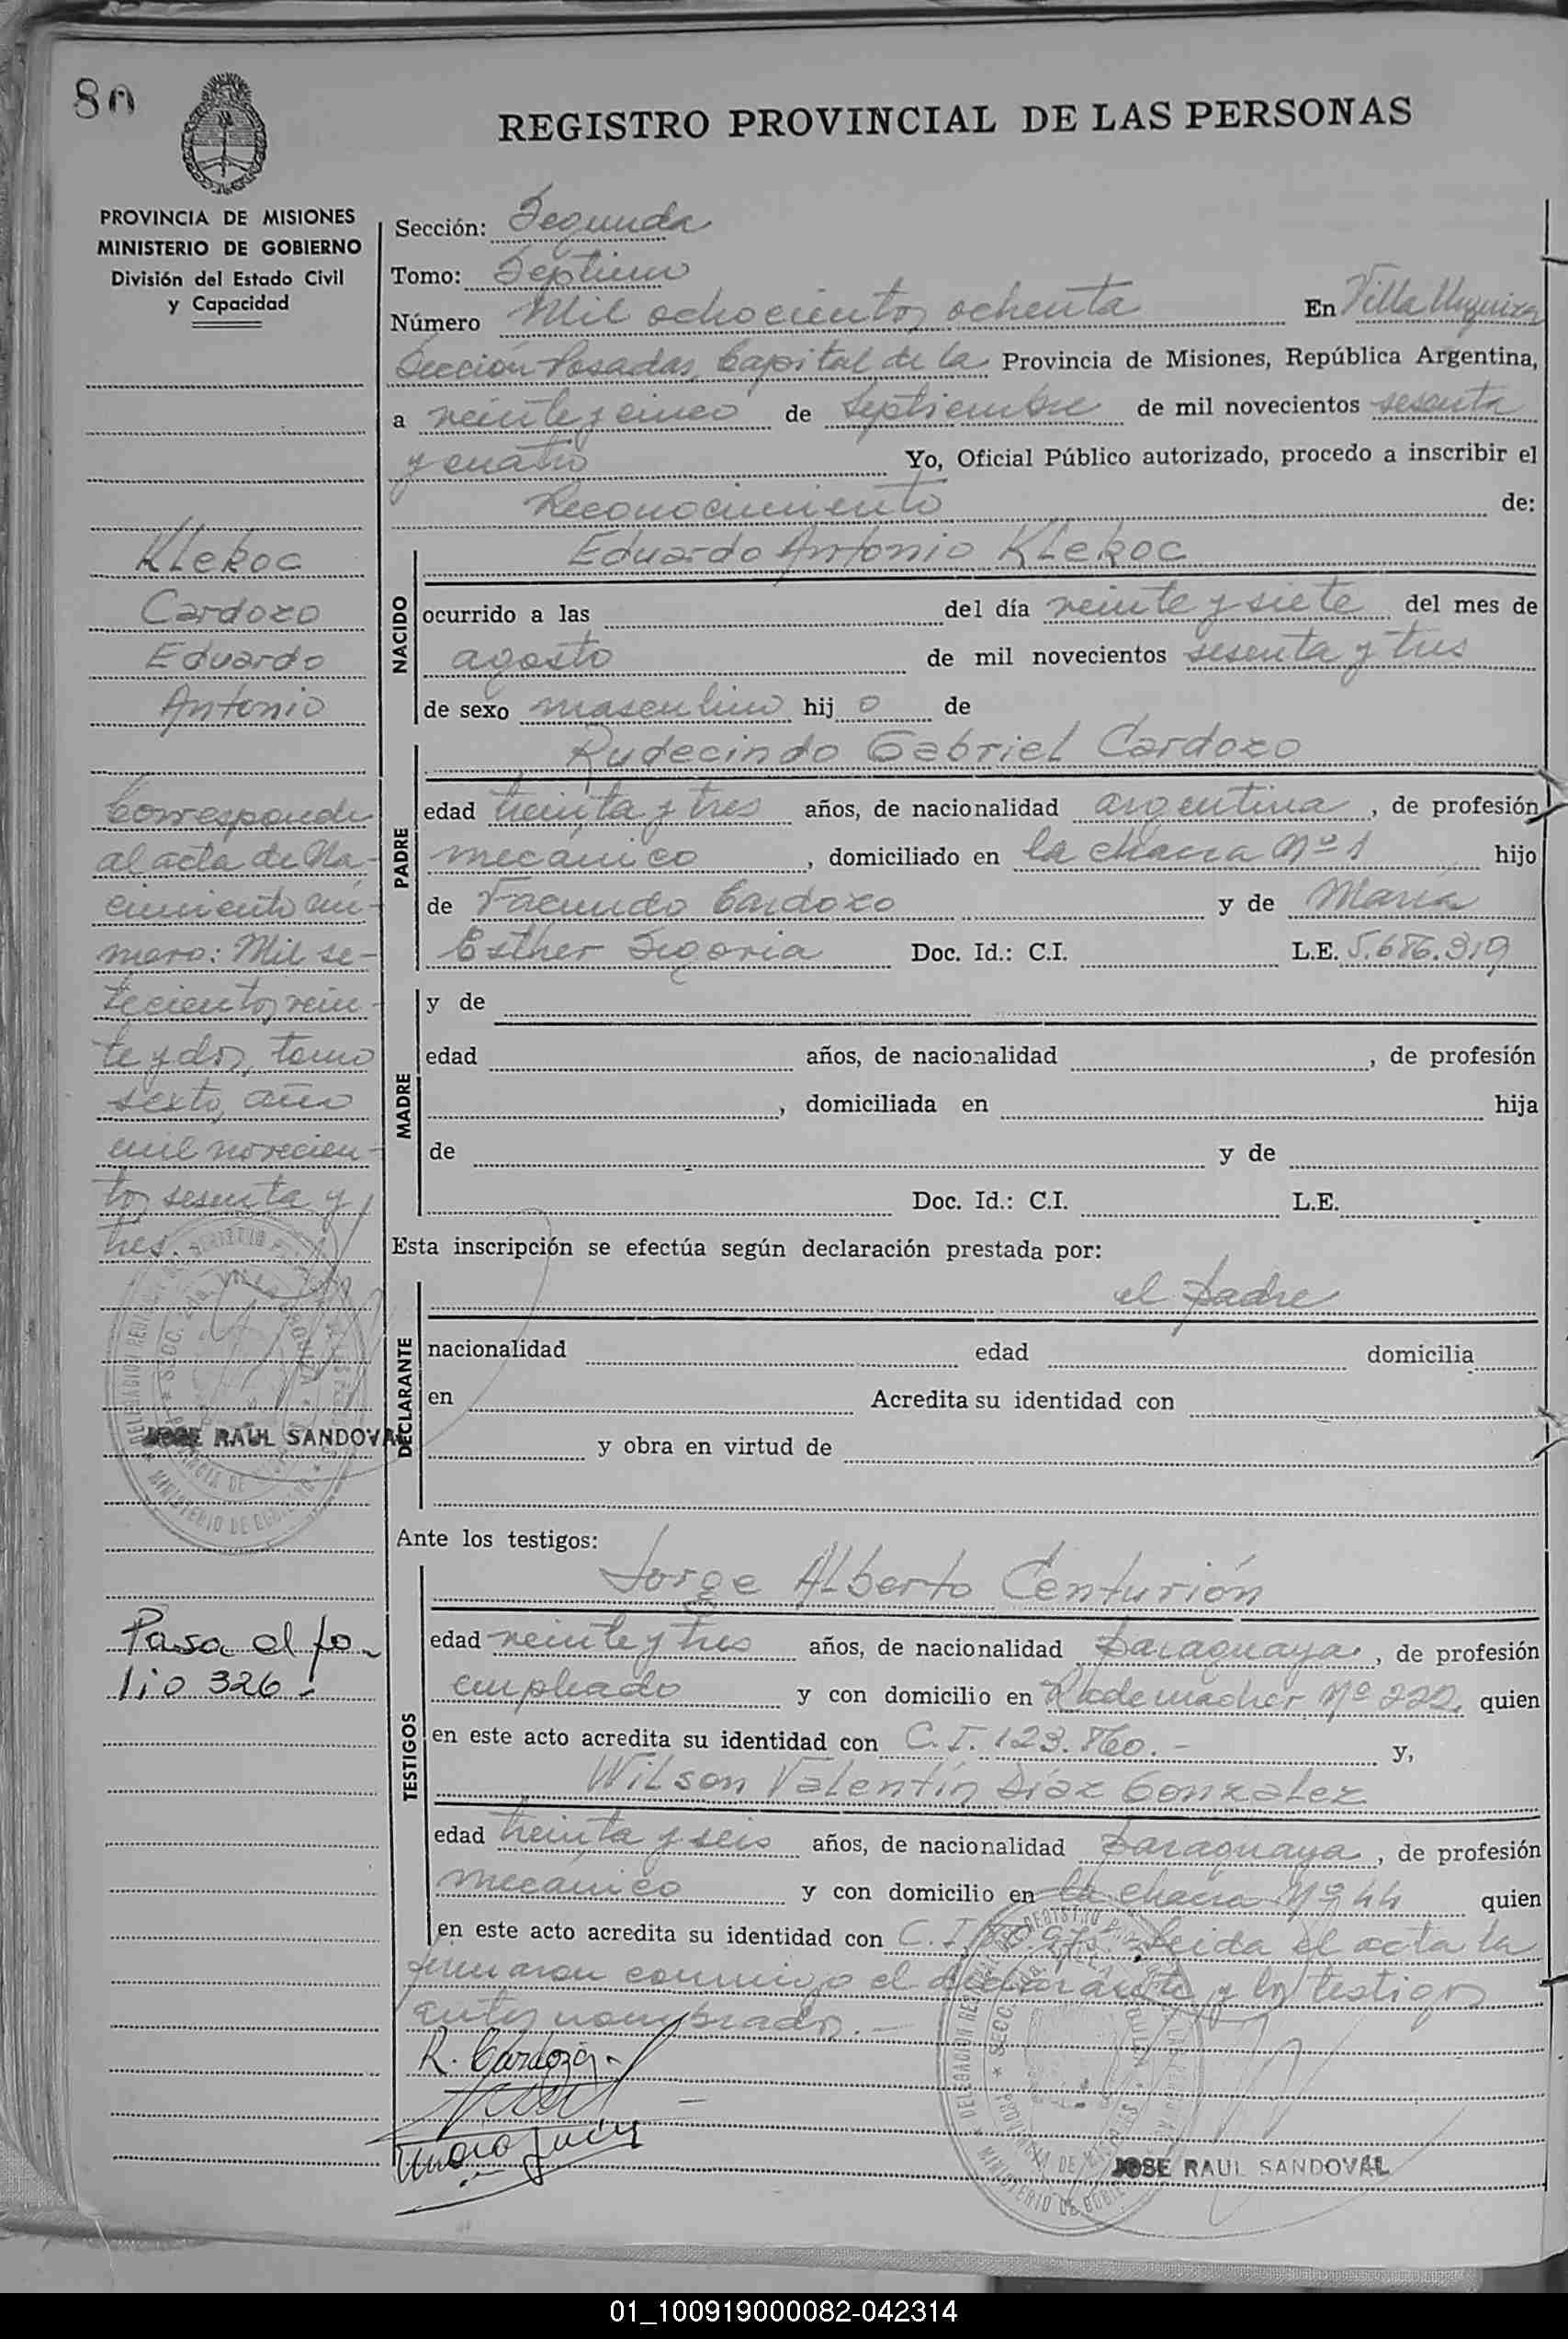 80
REGISTRO PROVINCIAL DE LAS PERSONAS
PROVINCIA DE MISIONES
MINISTERIO DE GOBIERNO
División del Estado Civil
y Capacidad
Sección: Segunda
Tomo: Septimo
Número Mil ochocientos ochenta En Villa Urquiza
Sección Posadas, Capital de la Provincia de Misiones, República Argentina,
a veinte y cinco de Septiembre de mil novecientos sesenta
y cuatro Yo, Oficial Público autorizado, procedo a inscribir el
Reconocimiento de:
Klekoc
Cardozo
Eduardo
Antonio
Corresponde
al acta de Na-
cimiento nú-
mero: Mil se-
tecientos vein-
te y dos, tomo
sexto, año
mil novecien-
tos sesenta y
tres.
JOSE RAUL SANDOVAL
Pasa al fo-
lio 326.-
NACIDO
Eduardo Antonio Klekoc
ocurrido a las del día veinte y siete del mes de
agosto de mil novecientos sesenta y tres
de sexo masculino hij o de
PADRE
Rudecindo Gabriel Cardozo
edad treinta y tres años, de nacionalidad argentina, de profesión
mecanico, domiciliado en la chacra Nº 1 hijo
de Facundo Cardozo y de María
Esther Segovia Doc. Id.: C.I. L.E. 5.686.319
MADRE
y de
edad años, de nacionalidad , de profesión
, domiciliada en hija
de y de
Doc. Id.: C.I. L.E.
Esta inscripción se efectúa según declaración prestada por:
DECLARANTE
el padre
nacionalidad edad domicilia
en Acredita su identidad con
y obra en virtud de
Ante los testigos:
TESTIGOS
Jorge Alberto Centurión
edad veinte y tres años, de nacionalidad paraguaya, de profesión
empleado y con domicilio en Rademacher Nº 222, quien
en este acto acredita su identidad con C.I. 123.860.- y,
Wilson Valentín Díaz Gonzalez
edad treinta y seis años, de nacionalidad paraguaya, de profesión
mecánico y con domicilio en la chacra Nº 44 quien
en este acto acredita su identidad con C.I. Leida el acta la
firmaron conmigo el declarante y los testigos
antes nombrados.-
R. Cardozo.-
JOSE RAUL SANDOVAL
01_100919000082-042314